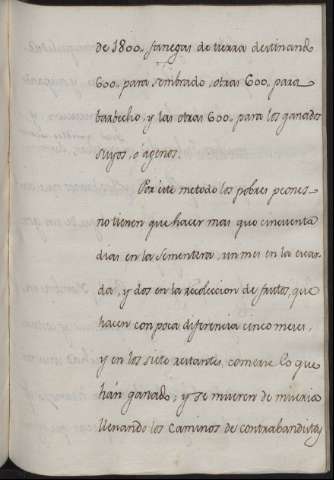 de 1800,, fanegas de tierra destinand
600,, para sembrado, otras 600,, para
barbecho, y las otras 600,, para los ganados
suyos, ó agenos.
Por este metodo los pobres peones
no tienen que hacer mas que cincuenta
dias en la sementera, un mes en la escar-
da, y dos en la recoleccion de frutos, que
hacen con poca diferencia cinco meses,
y en los siete restantes, comerse lo que
hán ganado, y se mueren de miseria
llenando los caminos de contrabandistas